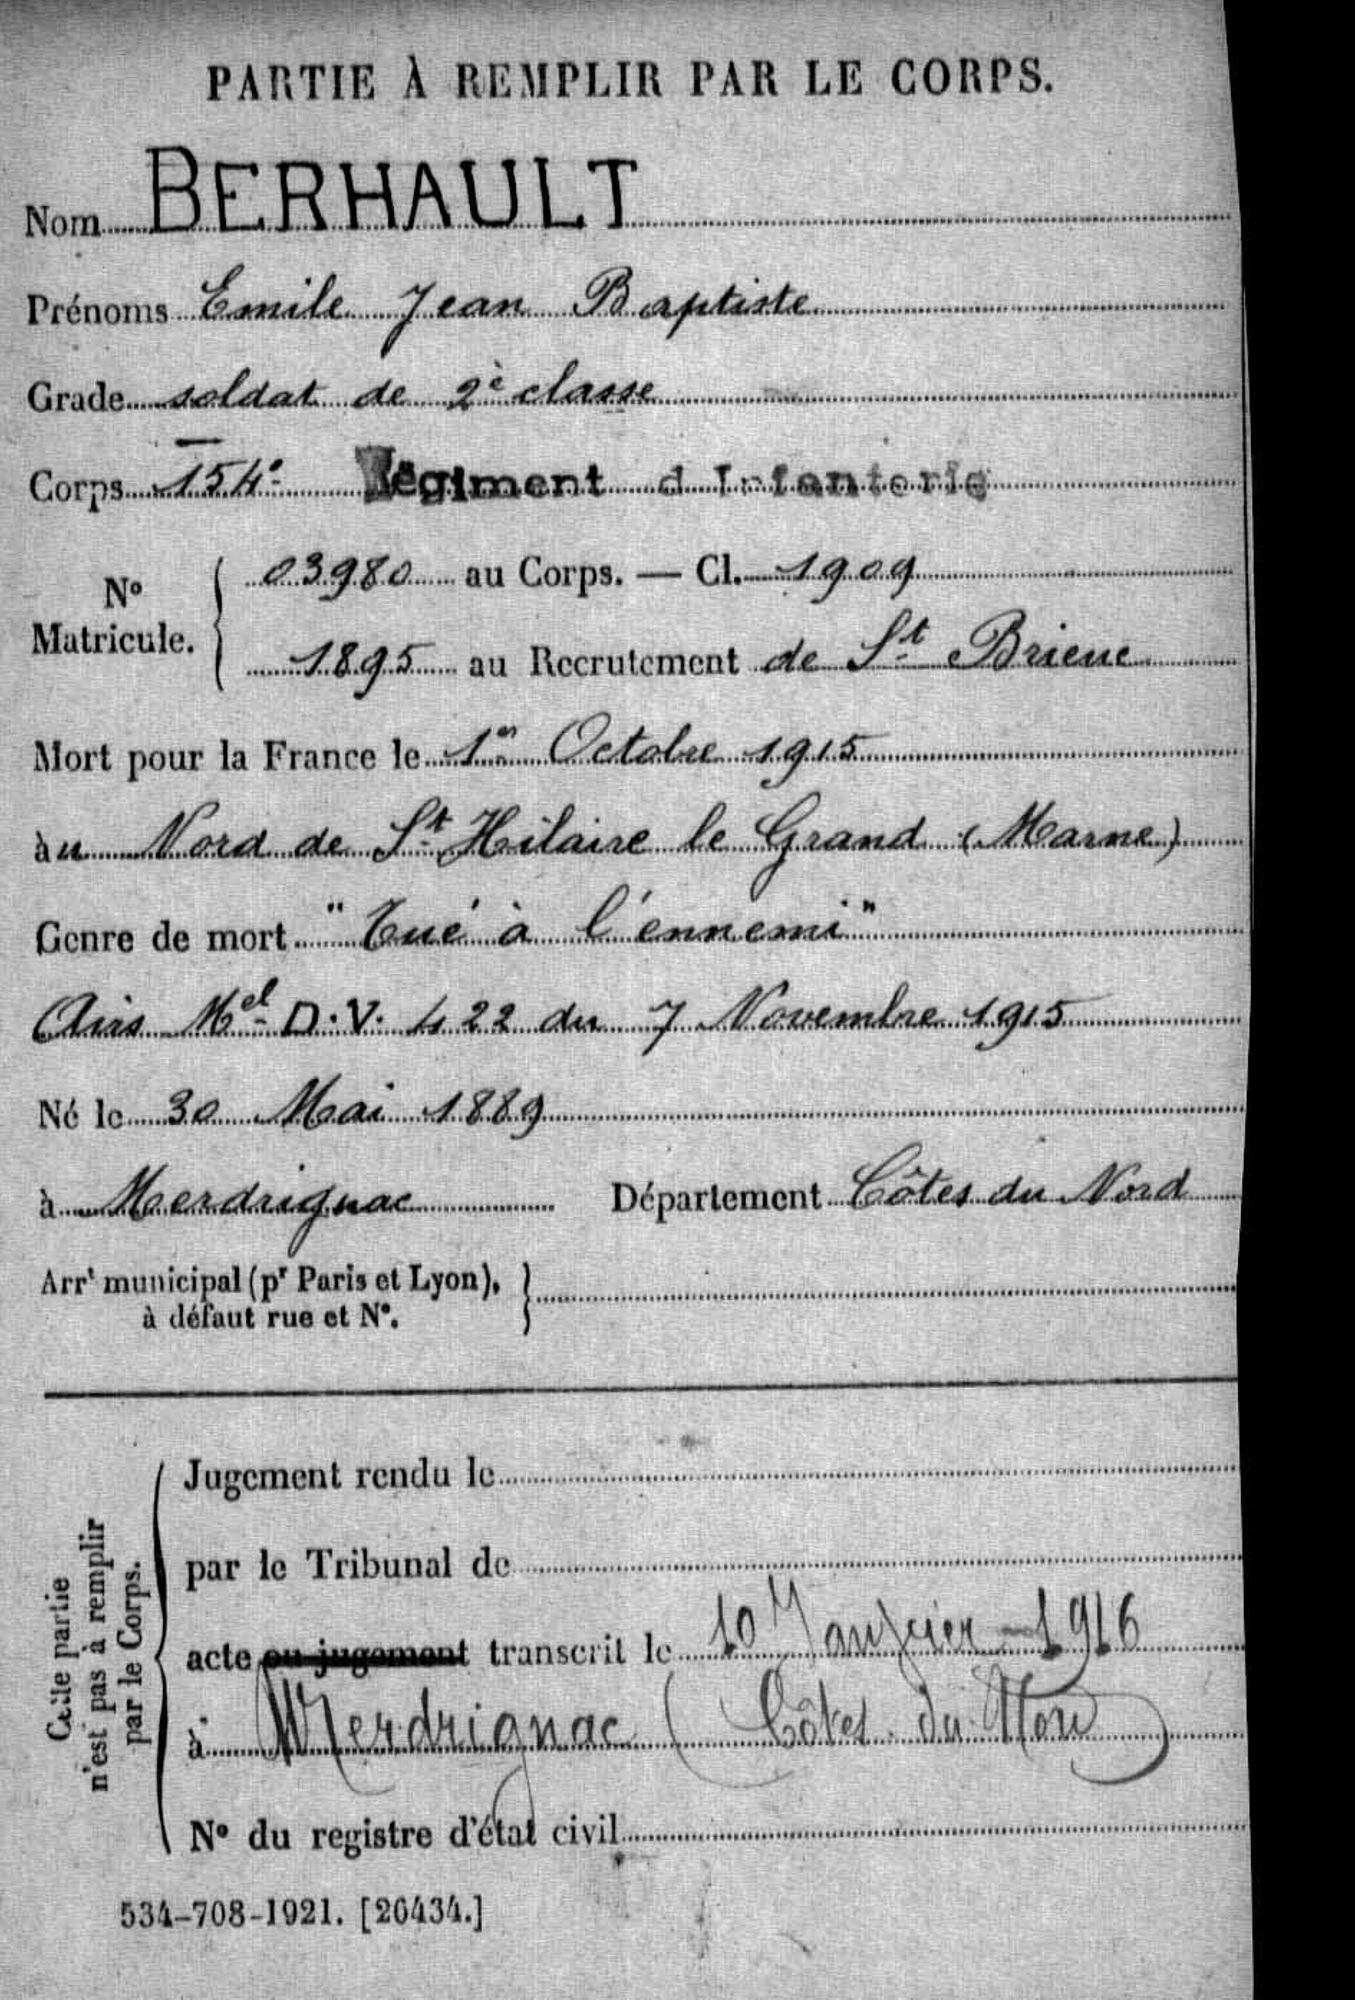 PARTIE À REMPLIR PAR LE CORPS.
Nom BERHAULT
Prénoms Emile Jean Baptiste
Grade soldat de 2è classe
Corps 154e Régiment d Infanterie
N° Matricule. { 03980 au Corps. — Cl. 1909
1895 au Recrutement de St Brieuc
Mort pour la France le 1er Octobre 1915
àu Nord de St Hilaire le Grand (Marne)
Genre de mort "Tué à l'ennemi"
Avis Mel D.V. 422 du 7 Novembre 1915
Né le 30 Mai 1889
à Merdrignac Département Côtes du Nord
Arrt municipal (pr Paris et Lyon), }
à défaut rue et N°.
Cette partie
n'est pas à remplir
par le Corps.
Jugement rendu le
par le Tribunal de
acte ou jugement transcrit le 10 Janvier 1916
à Merdrignac (Côtes du Nord)
N° du registre d'état civil
534-708-1921. [26434.]